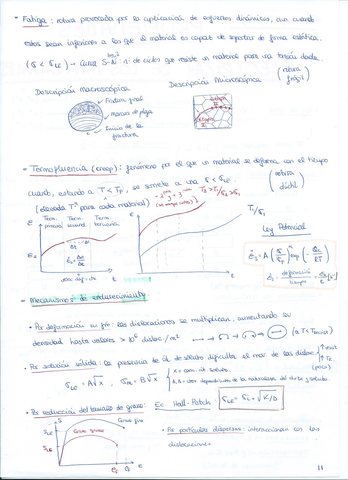 • Fatiga: rotura provocada por la aplicación de esfuerzos dinámicos, aun cuando
estos sean inferiores a los que el material es capaz de soportar de forma estática.
(σ < σLE) → Curva S-N: nº de ciclos que resiste un material para una tensión dada.
(rotura frágil)
Descripción macroscópica
Descripción Microscópica
Fractura final
marcas de playa
Inicio de la
fractura
• Termofluencia (creep): fenómeno por el que un material se deforma con el tiempo
cuando, estando a T < TF, se somete a una σ < σLE.
(elevada Tª para cada material)
(rotura
dúctil)
Term. primaria
Term. secund
Term. terciaria
T/σ1
Ley Potencial
t
t
• Mecanismos de endurecimiento
• Por deformación en frío: las dislocaciones se multiplican, aumentando su
densidad hasta valores > 10 disloc/m²
• Por solución sólida: la presencia de át. de soluto dificulta el mov. de las disloc.
σLE = A√x
σR = B√x
x = conc. át. soluto.
A, B = ctes dependientes de la naturaleza del disolv. y soluto.
• Por reducción del tamaño de grano:
Ec. Hall-Petch: σLE = σi + √K/D
Grano fino
Grano grueso
• Por partículas dispersas: interaccionan con las
dislocaciones
11